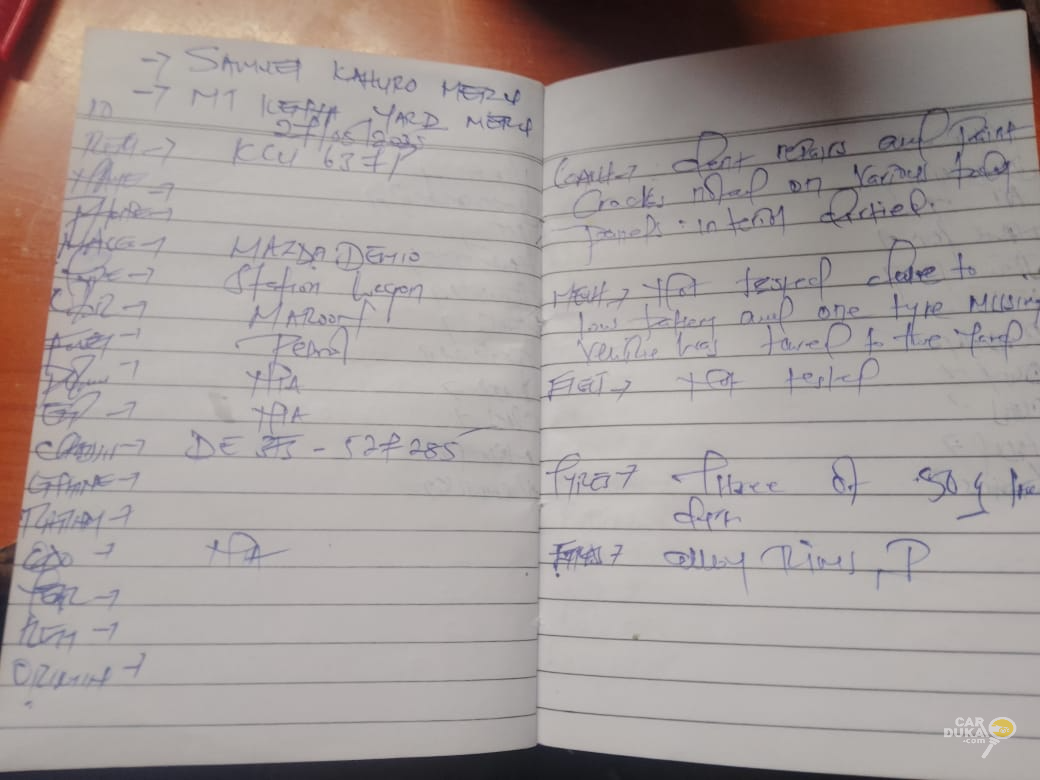 → SAMUEL KAHURO MERU
→ MT KENYA YARD MERU
27/05/2025
REG → KCU 637P
MAKE → MAZDA DEMIO
TYPE → Station Wagon
COLOR → MAROON
FUEL → Petrol
→ N/A
→ N/A
CHASSIS → DE 3FS - 527285
ENGINE →
RATING →
ODO → N/A
→
→
ORIGIN →
COACH → dent repairs and paint
Cracks noted on various body
panels. interior
MECH → Not tested due to
low battery and one tyre missing
vehicle was towed to the yard
ELECT → Not tested
TYRES → Three of 50%
→ alloy Rims, P
CAR DUKA .com